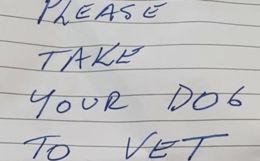 PLEASE
TAKE
YOUR DOG
TO VET